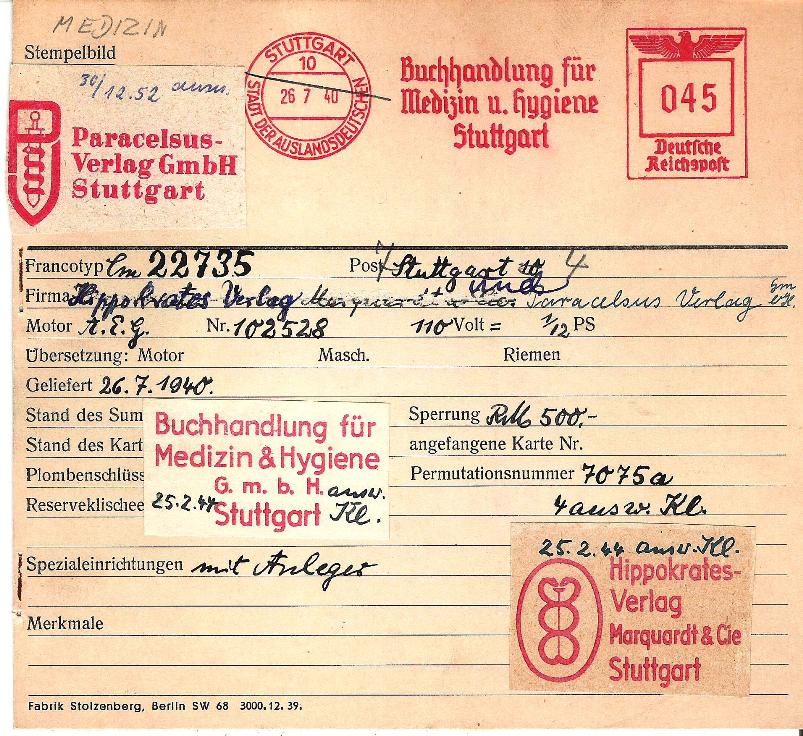 MEDIZIN
Stempelbild
30/12.52 ausw.
Paracelsus-
Verlag GmbH
Stuttgart
STUTTGART
10
26 7 40
STADT DER AUSLANDSDEUTSCHEN
Buchhandlung für
Medizin u. Hygiene
Stuttgart
045
Deutsche
Reichspost
Francotyp Cm 22735 Post Stuttgart 10 4
Firma Hippokrates Verlag Marquardt & Cie Paracelsus Verlag GmbH.
Motor A.E.G. Nr. 102528 110 Volt = 1/12 PS
Übersetzung: Motor Masch. Riemen
Geliefert 26.7.1940.
Stand des Sum
Sperrung RM 500,-
Stand des Kart
angefangene Karte Nr.
Plombenschlüss
Permutationsnummer 7075a
Reserveklischee
4 ausw. Kl.
Buchhandlung für
Medizin & Hygiene
G. m. b. H. ausw.
25.2.44 Stuttgart Kl.
Spezialeinrichtungen mit Anleger
Merkmale
25.2.44 ausw. Kl.
Hippokrates-
Verlag
Marquardt & Cie
Stuttgart
Fabrik Stolzenberg, Berlin SW 68 3000.12.39.